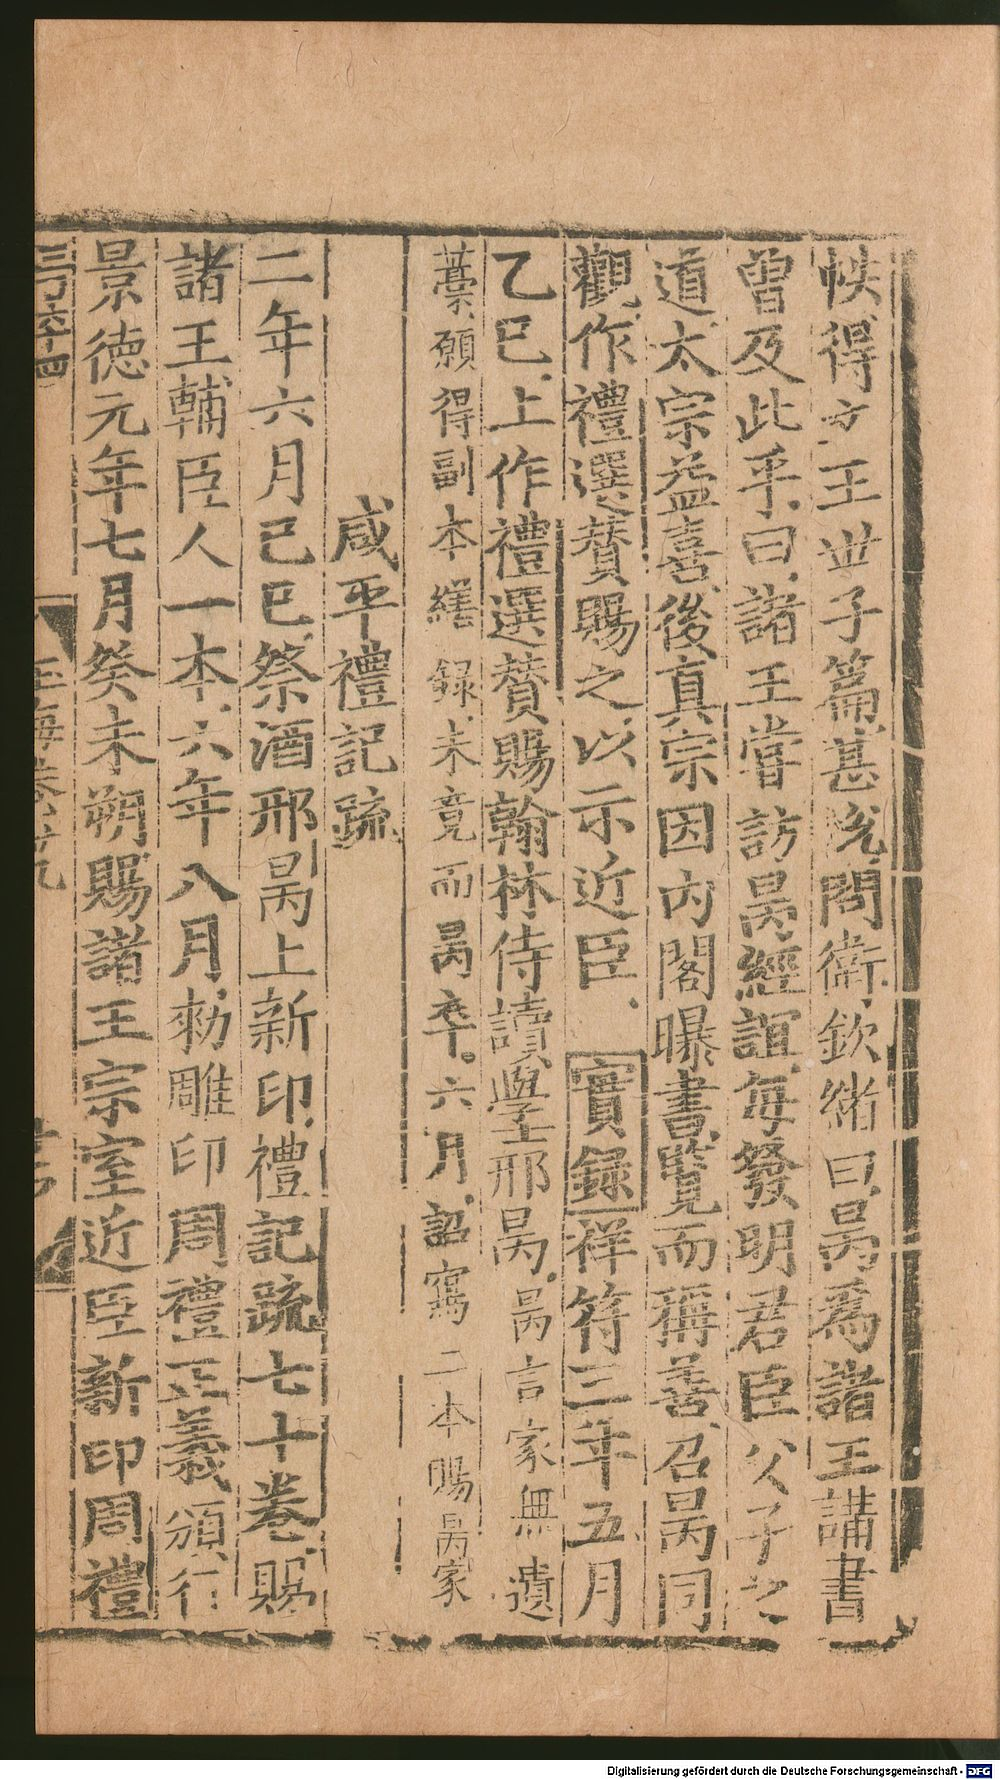 帙得文王世子篇甚悦問衛欽緒曰昺爲諸王講書
曽及此乎曰諸王嘗訪昺經誼每發明君臣父子之
道太宗益喜後真宗因内閣曝書覽而稱善召昺同
觀作禮選贊賜之以示近臣實録祥符三年五月
乙巳上作禮選贊賜翰林侍讀學邢昺昺言家無遺
藁願得副本繕録未竟而昺卒六月詔寫二本賜昺家
咸平禮記疏
二年六月己巳祭酒邢昺上新印禮記疏七十卷賜
諸王輔臣人一本六年八月勑雕印周禮正義頒行
景德元年七月癸未朔賜諸王宗室近臣新印周禮
玉海卷卅九
Digitalisierung gefördert durch die Deutsche Forschungsgemeinschaft - DFG